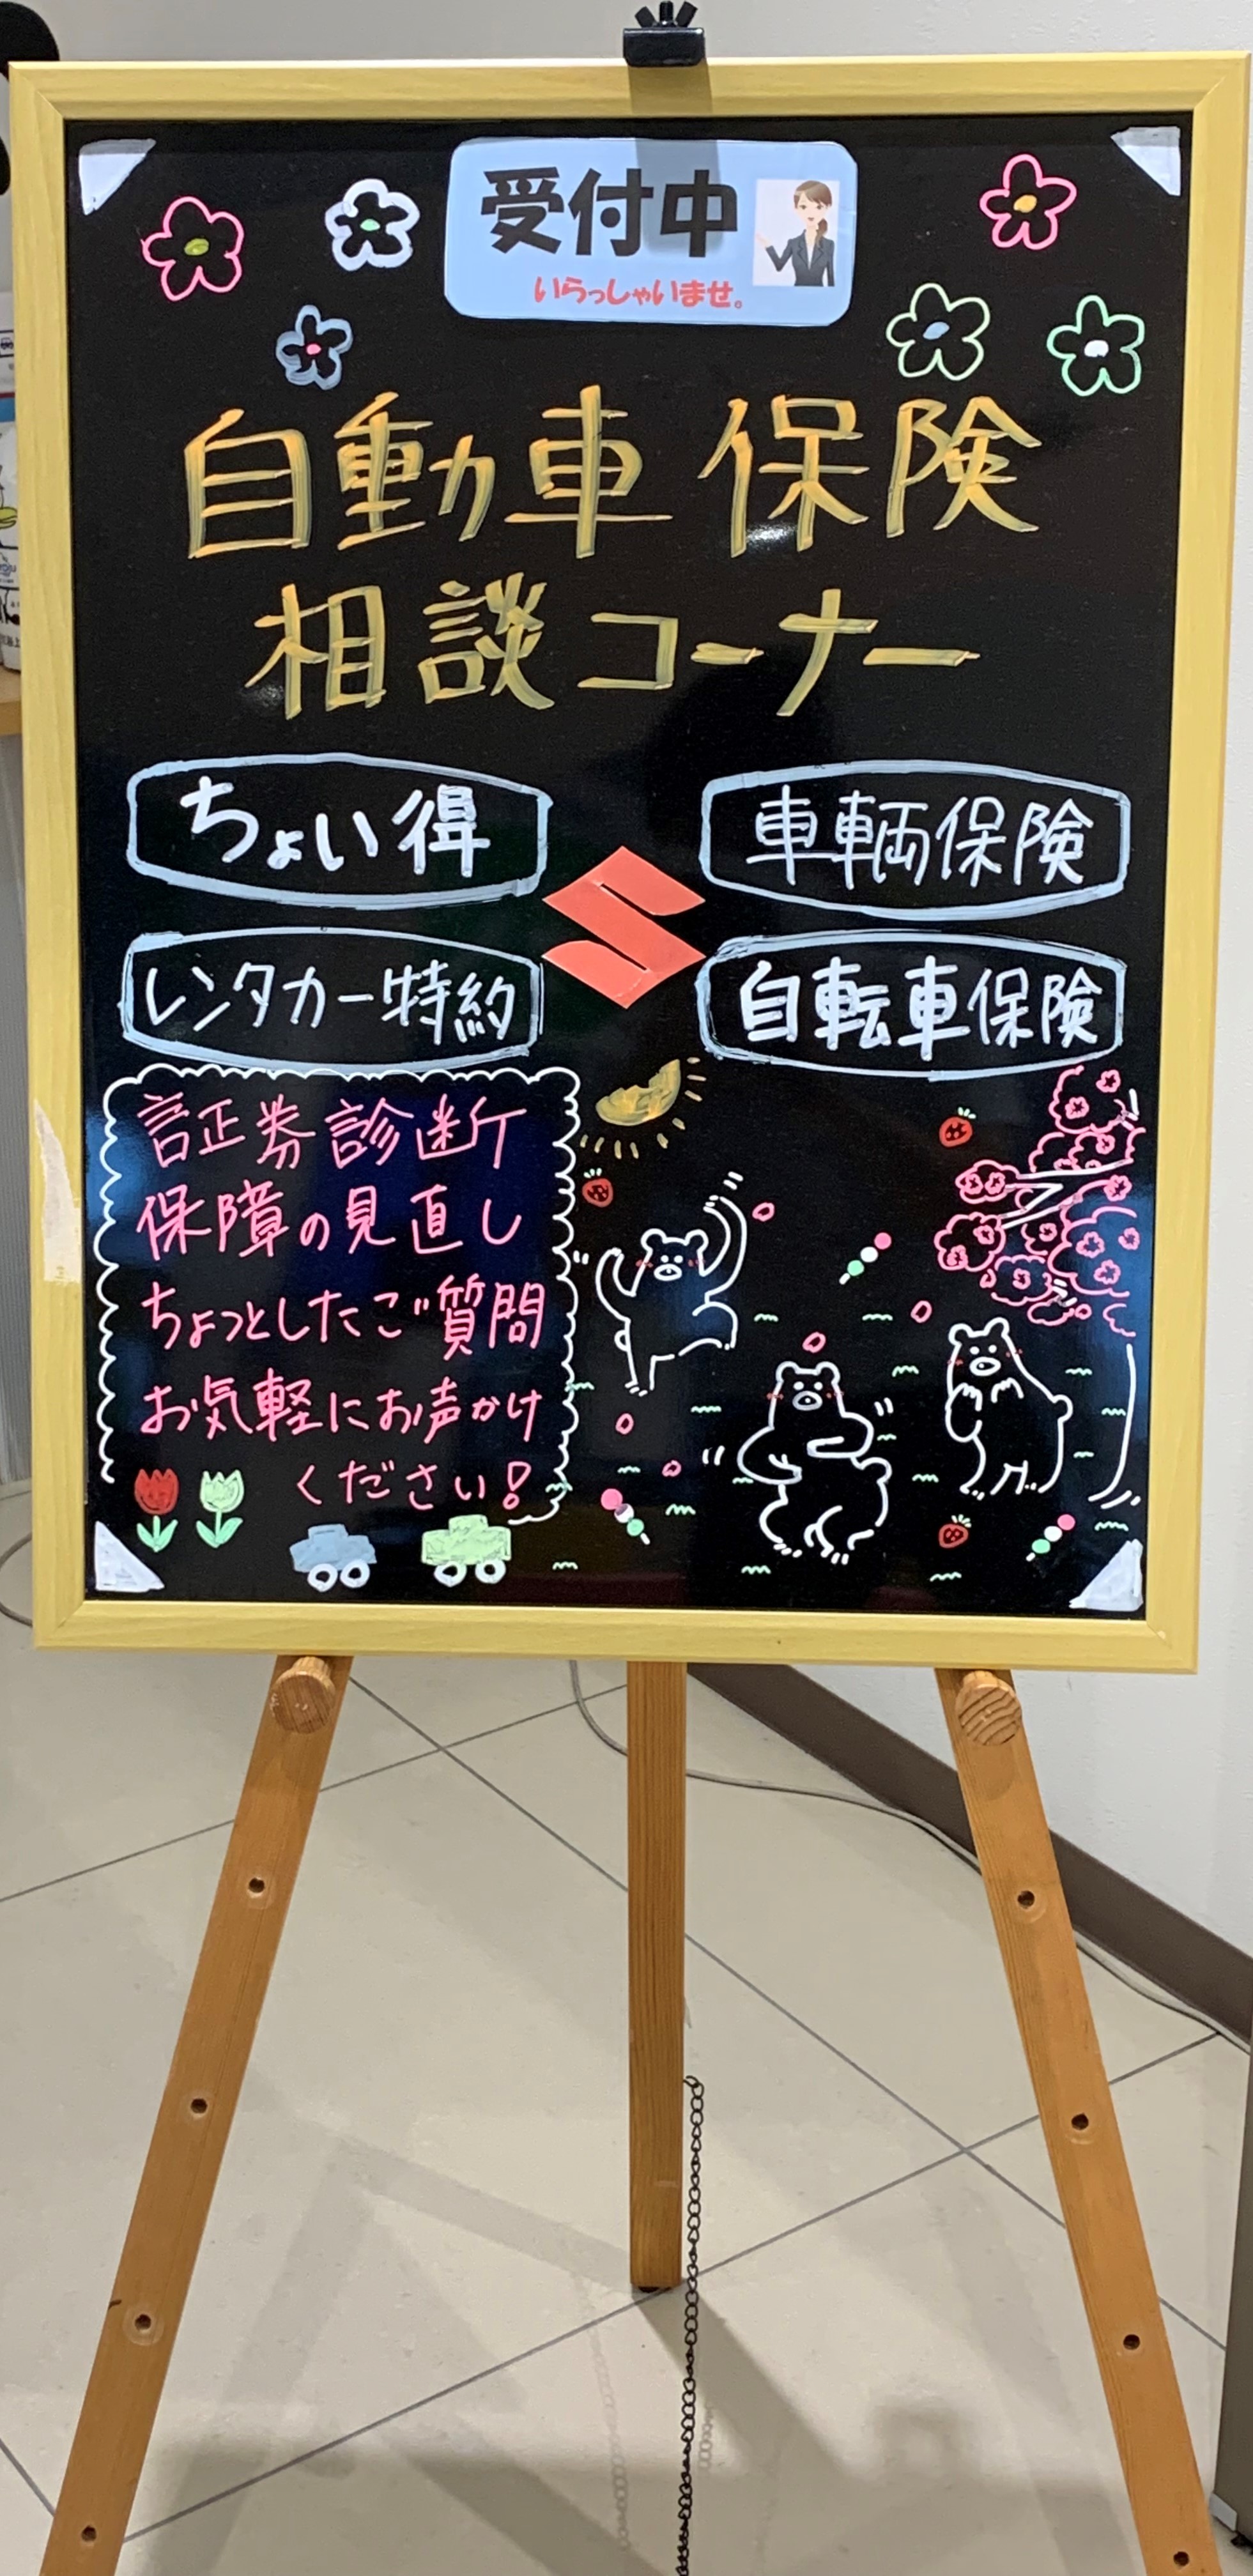 受付中
いらっしゃいませ。
自動車保険
相談コーナー
ちょい得
車輌保険
レンタカー特約
自転車保険
証券診断
保障の見直し
ちょっとしたご質問
お気軽にお声かけ
ください!